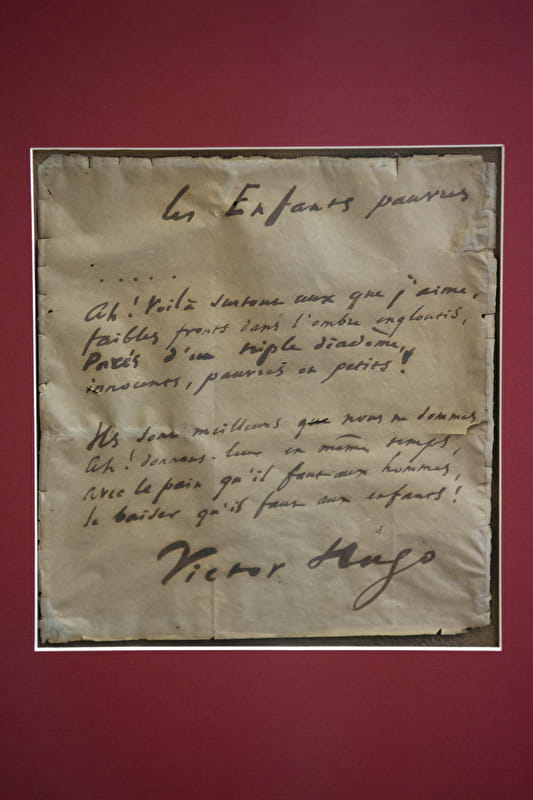 les Enfants pauvres
. . . . .
Ah! Voilà surtout ceux que j'aime,
faibles fronts dans l'ombre engloutis,
Parés d'un triple diadème,
innocents, pauvres et petits!
Ils sont meilleurs que nous ne sommes
Ah! donnons-leur en même temps,
avec le pain qu'il faut aux hommes,
le baiser qu'il faut aux enfants!
Victor Hugo